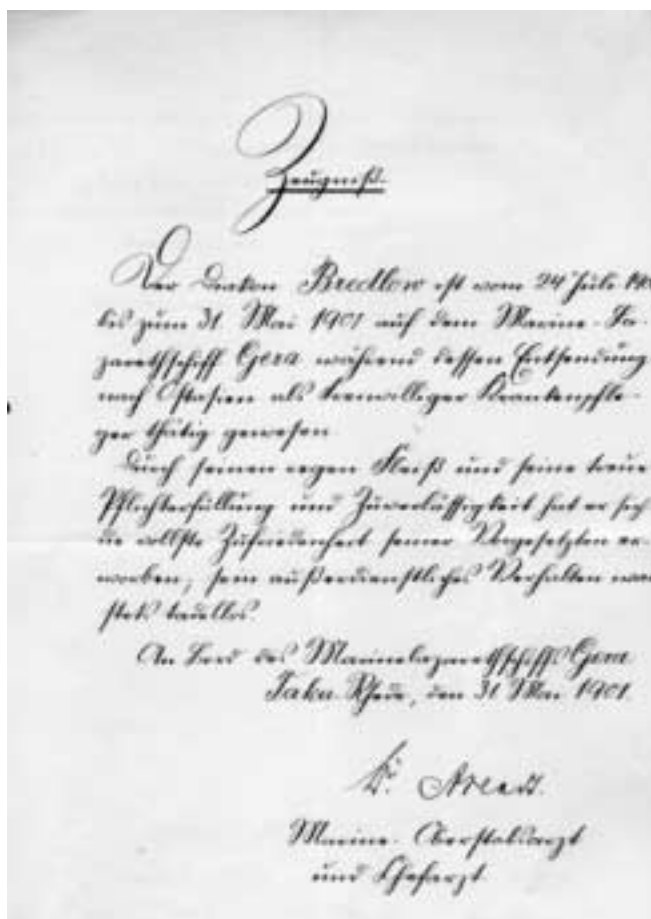 Zeugniß.
Der Diakon Bredlow ist vom 24 Juli 190
bis zum 31 Mai 1901 auf dem Marine-La-
zarethschiff Gera während dessen Entsendung
nach Ostasien als freiwilliger Krankenpfle-
ger thätig gewesen.
Durch seinen regen Fleiß und seine treue
Pflichterfüllung und Zuverlässigkeit hat er sich
die vollste Zufriedenheit seiner Vorgesetzten er-
worben, sein außerdienstliches Verhalten war
stets tadellos.
An Bord des Marinelazarethschiffs Gera
Taku-Rhede, den 31 Mai 1901.
Dr. Arendt.
Marine-Oberstabsarzt
und Chefarzt